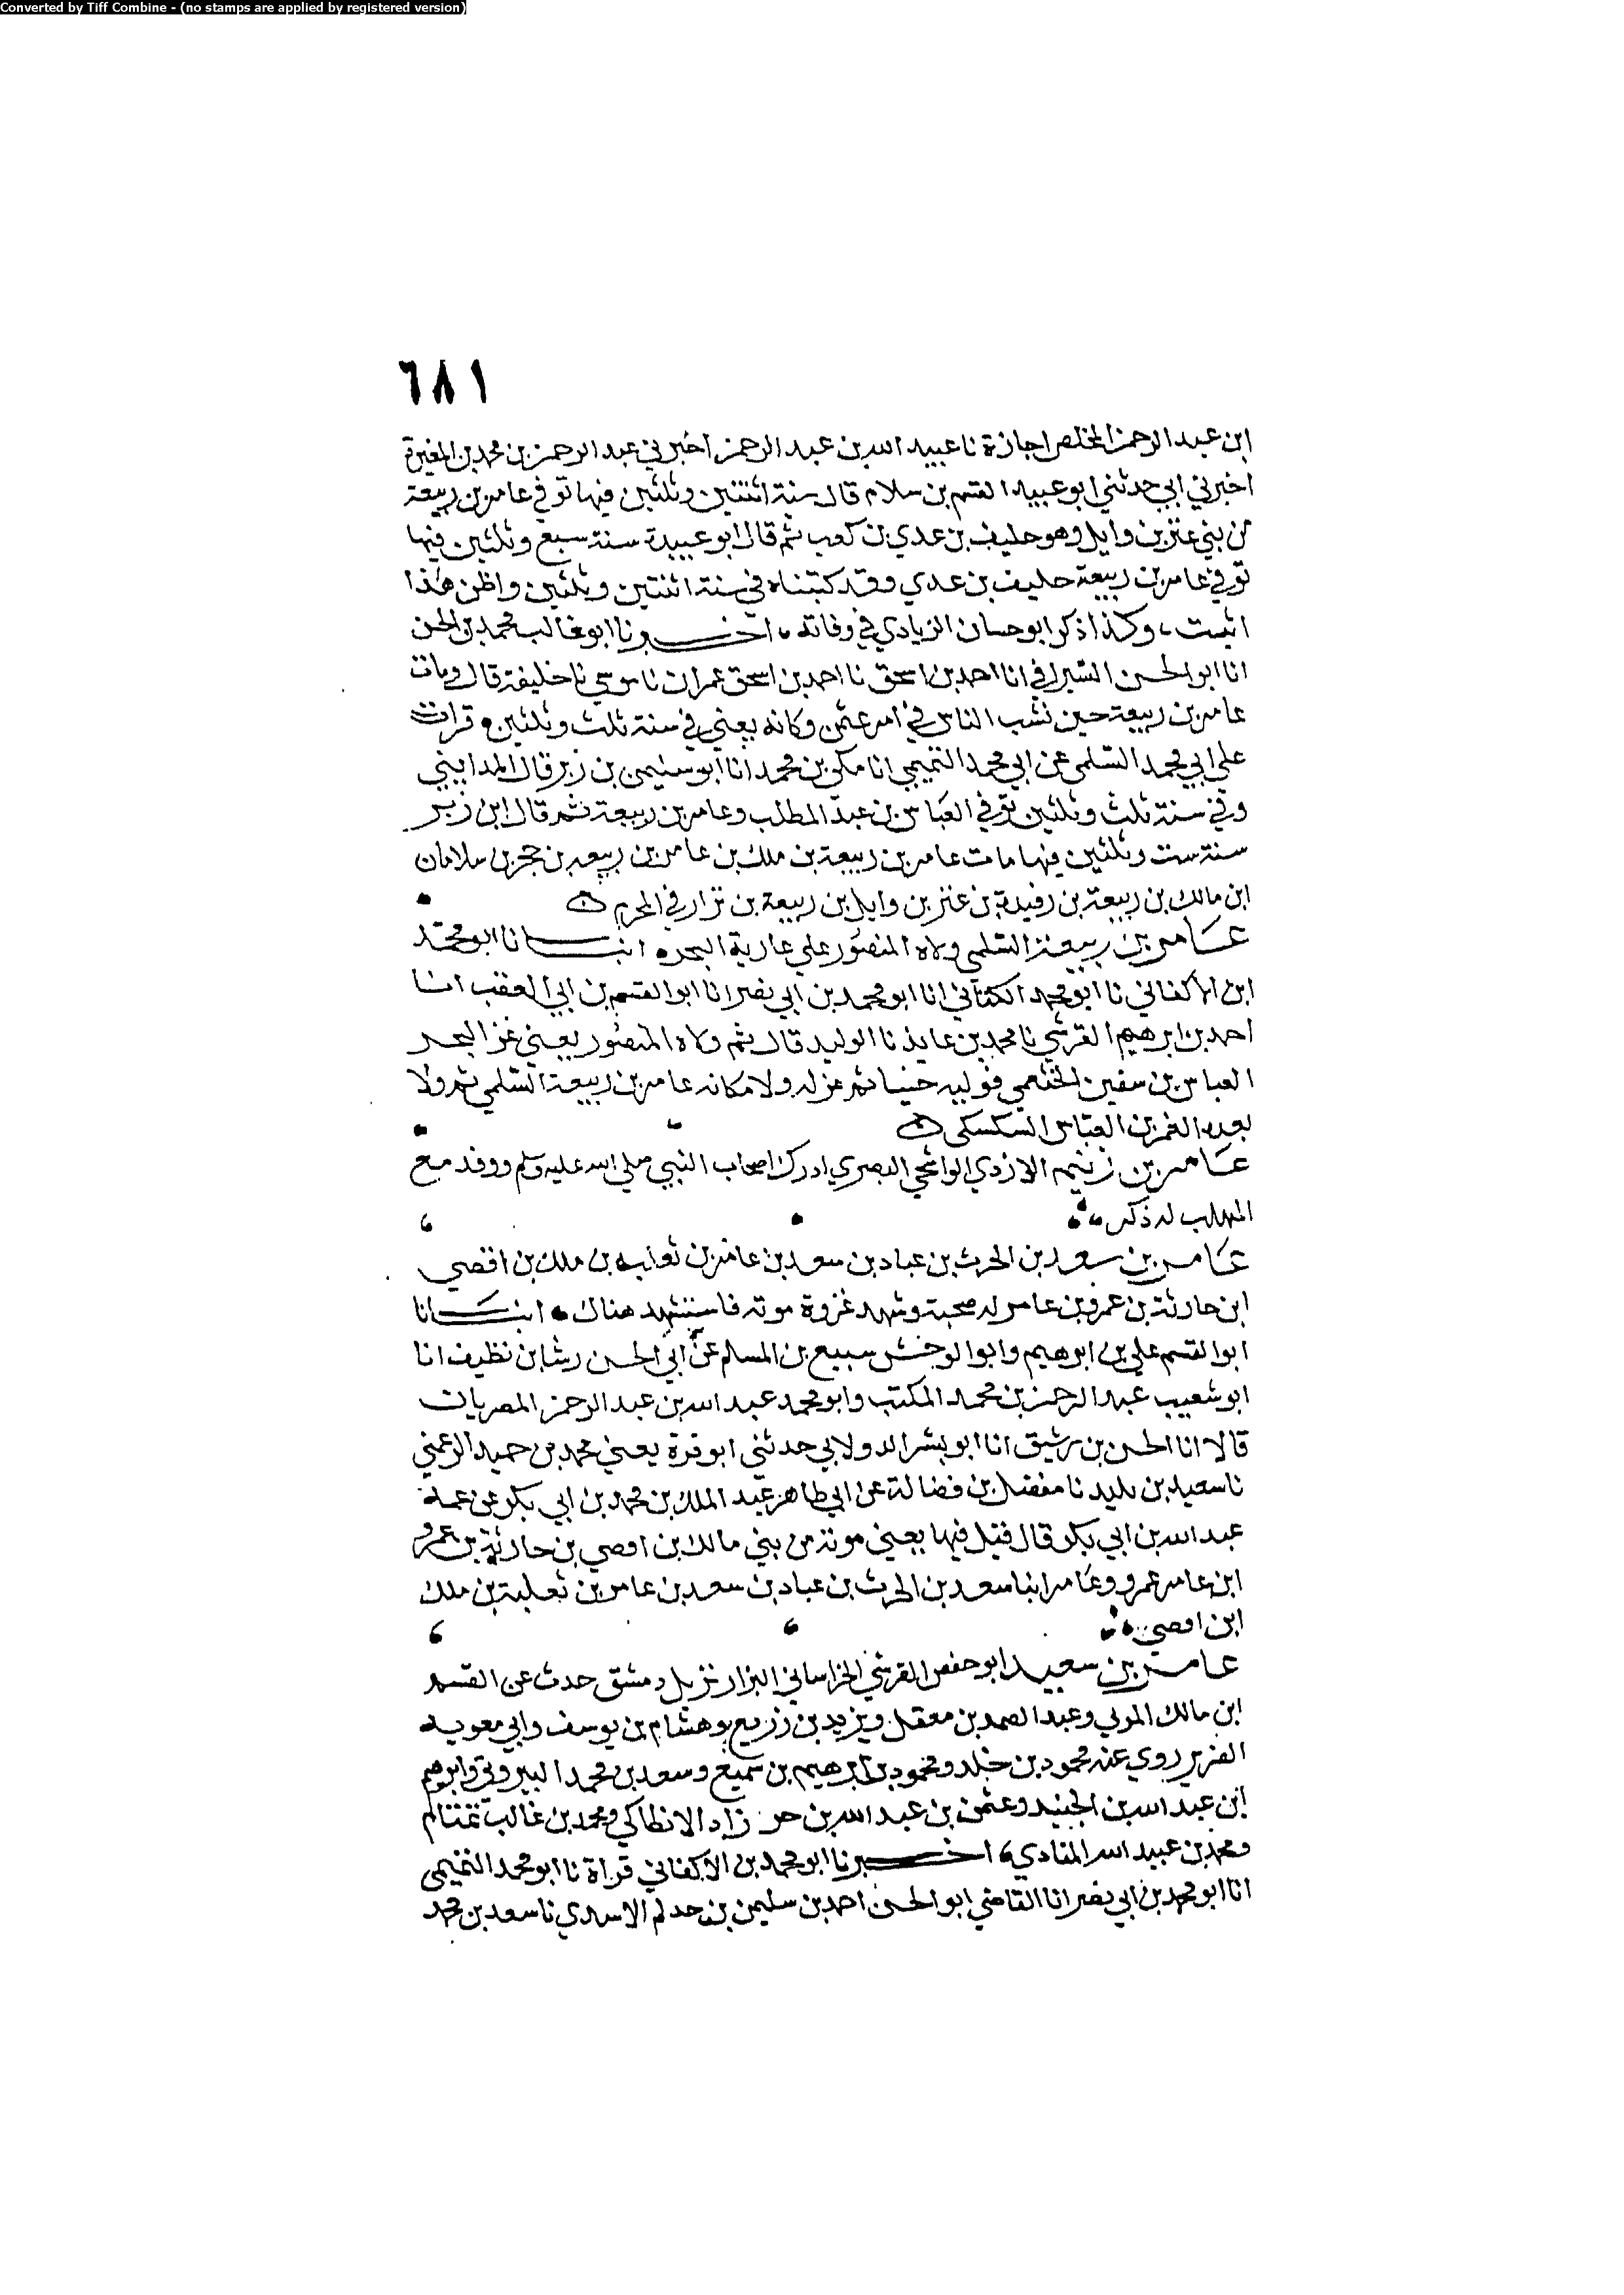 Converted by Tiff Combine - (no stamps are applied by registered version)
٦٨١
ابن عبد الرحمن المخلص اجازة نا عبيد الله بن عبد الرحمن اخبرني عبد الرحمن بن محمد بن المغيرة
اخبرني ابي حدثني ابو عبيد القسم بن سلام قال سنة اثنتين وثلثين فيها توفي عامر بن ربيعة
من بني عنز بن وايل وهو حليف بن عدي بن كعب ثم قال ابو عبيدة سنة سبع وثلثين فيها
توفي عامر بن ربيعة حليف بن عدي وقد كتبناه في سنة اثنتين وثلثين واظن هذا
اثبت، وكذا ذكر ابو حسان الزيادي في وفاته، اخبرنا ابو غالب محمد بن الحسن
انا ابو الحسن السيرافي انا احمد بن اسحق نا احمد بن اسحق عمران نا موسى نا خليفة قال ومات
عامر بن ربيعة حين نشب الناس في امر عثمن وكانه يعني في سنة ثلث وثلثين ۰ قرات
على ابي محمد السلمي عن ابي محمد التميمي انا مكي بن محمد انا ابو سليمن بن زبر قال المدايني
وفي سنة ثلث وثلثين توفي العباس بن عبد المطلب وعامر بن ربيعة ثم قال ابن زبر
سنة ست وثلثين فيها مات عامر بن ربيعة بن ملك بن عامر بن ربيعه بن حجر بن سلامان
ابن مالك بن ربيعة بن رفيدة بن عنز بن وايل بن ربيعة بن نزار في المحرم
عامر بن ربيعة السلمي ولاه المنصور على غازية البحر ۰ انبانا ابو محمد
ابن الاكفاني نا ابو محمد الكتاني انا ابو محمد بن ابي نصر انا ابو القسم بن ابي العقب انا
احمد بن ابرهيم القرشي نا محمد بن عايذ نا الوليد قال ثم ولاه المنصور يعني غزا البحر
العباس بن سفين الخثعمي فوليه حينا ثم عزله ولا مكانه عامر بن ربيعة السلمي ثم ولا
بعده الغمر بن العباس السكسكي
عامر بن زنيم الازدي الواشحي البصري ادرك اصحاب النبي صلى الله عليه وسلم ووفد مع
المهلب له ذكر
عامر بن سعد بن الحرث بن عباد بن سعد بن عامر بن ثعلبه بن ملك بن افصي
ابن حارثة بن عمرو بن عامر له صحبة وشهد غزوة موته فاستشهد هناك ۰ انبانا
ابو القسم علي بن ابرهيم وابو الوحش سبيع بن المسلم عن ابي الحسن رشا بن نظيف انا
ابو شعيب عبد الرحمن بن محمد المكتب وابو محمد عبد الله بن عبد الرحمن المصريان
قالا انا الحسن بن رشيق انا ابو بشر الدولابي حدثني ابو قرة يعني محمد بن حميد الرعيني
نا سعيد بن تليد نا مفضل بن فضالة عن ابي طاهر عبد الملك بن محمد بن ابي بكر عن عمه
عبد الله بن ابي بكر قال قتل فيها يعني موتة من بني مالك بن افصي بن حارثة بن عمرو
ابن عامر عمرو وعامر ابنا سعد بن الحرث بن عباد بن سعد بن عامر بن ثعلبة بن ملك
ابن افصي
عامر بن سعيد ابو حفص القرشي الخراساني البزار نزيل دمشق حدث عن القسم
ابن مالك المزني وعبد الصمد بن معقل ويزيد بن زريع وهشام بن يوسف وابي معويه
الضرير روي عنه محمود بن خلد ومحمود بن ابرهيم بن سميع وسعد بن محمد البيروتي وابرهيم
ابن عبد الله بن الجنيد وعثمن بن عبد الله بن خرزاد الانطاكي ومحمد بن غالب تمتام
ومحمد بن عبيد الله المنادي، اخبرنا ابو محمد بن الاكفاني قراة نا ابو محمد التميمي
انا ابو محمد بن ابي نصر انا القاضي ابو الحسن احمد بن سليمن بن حذلم الاسدي نا سعد بن محمد